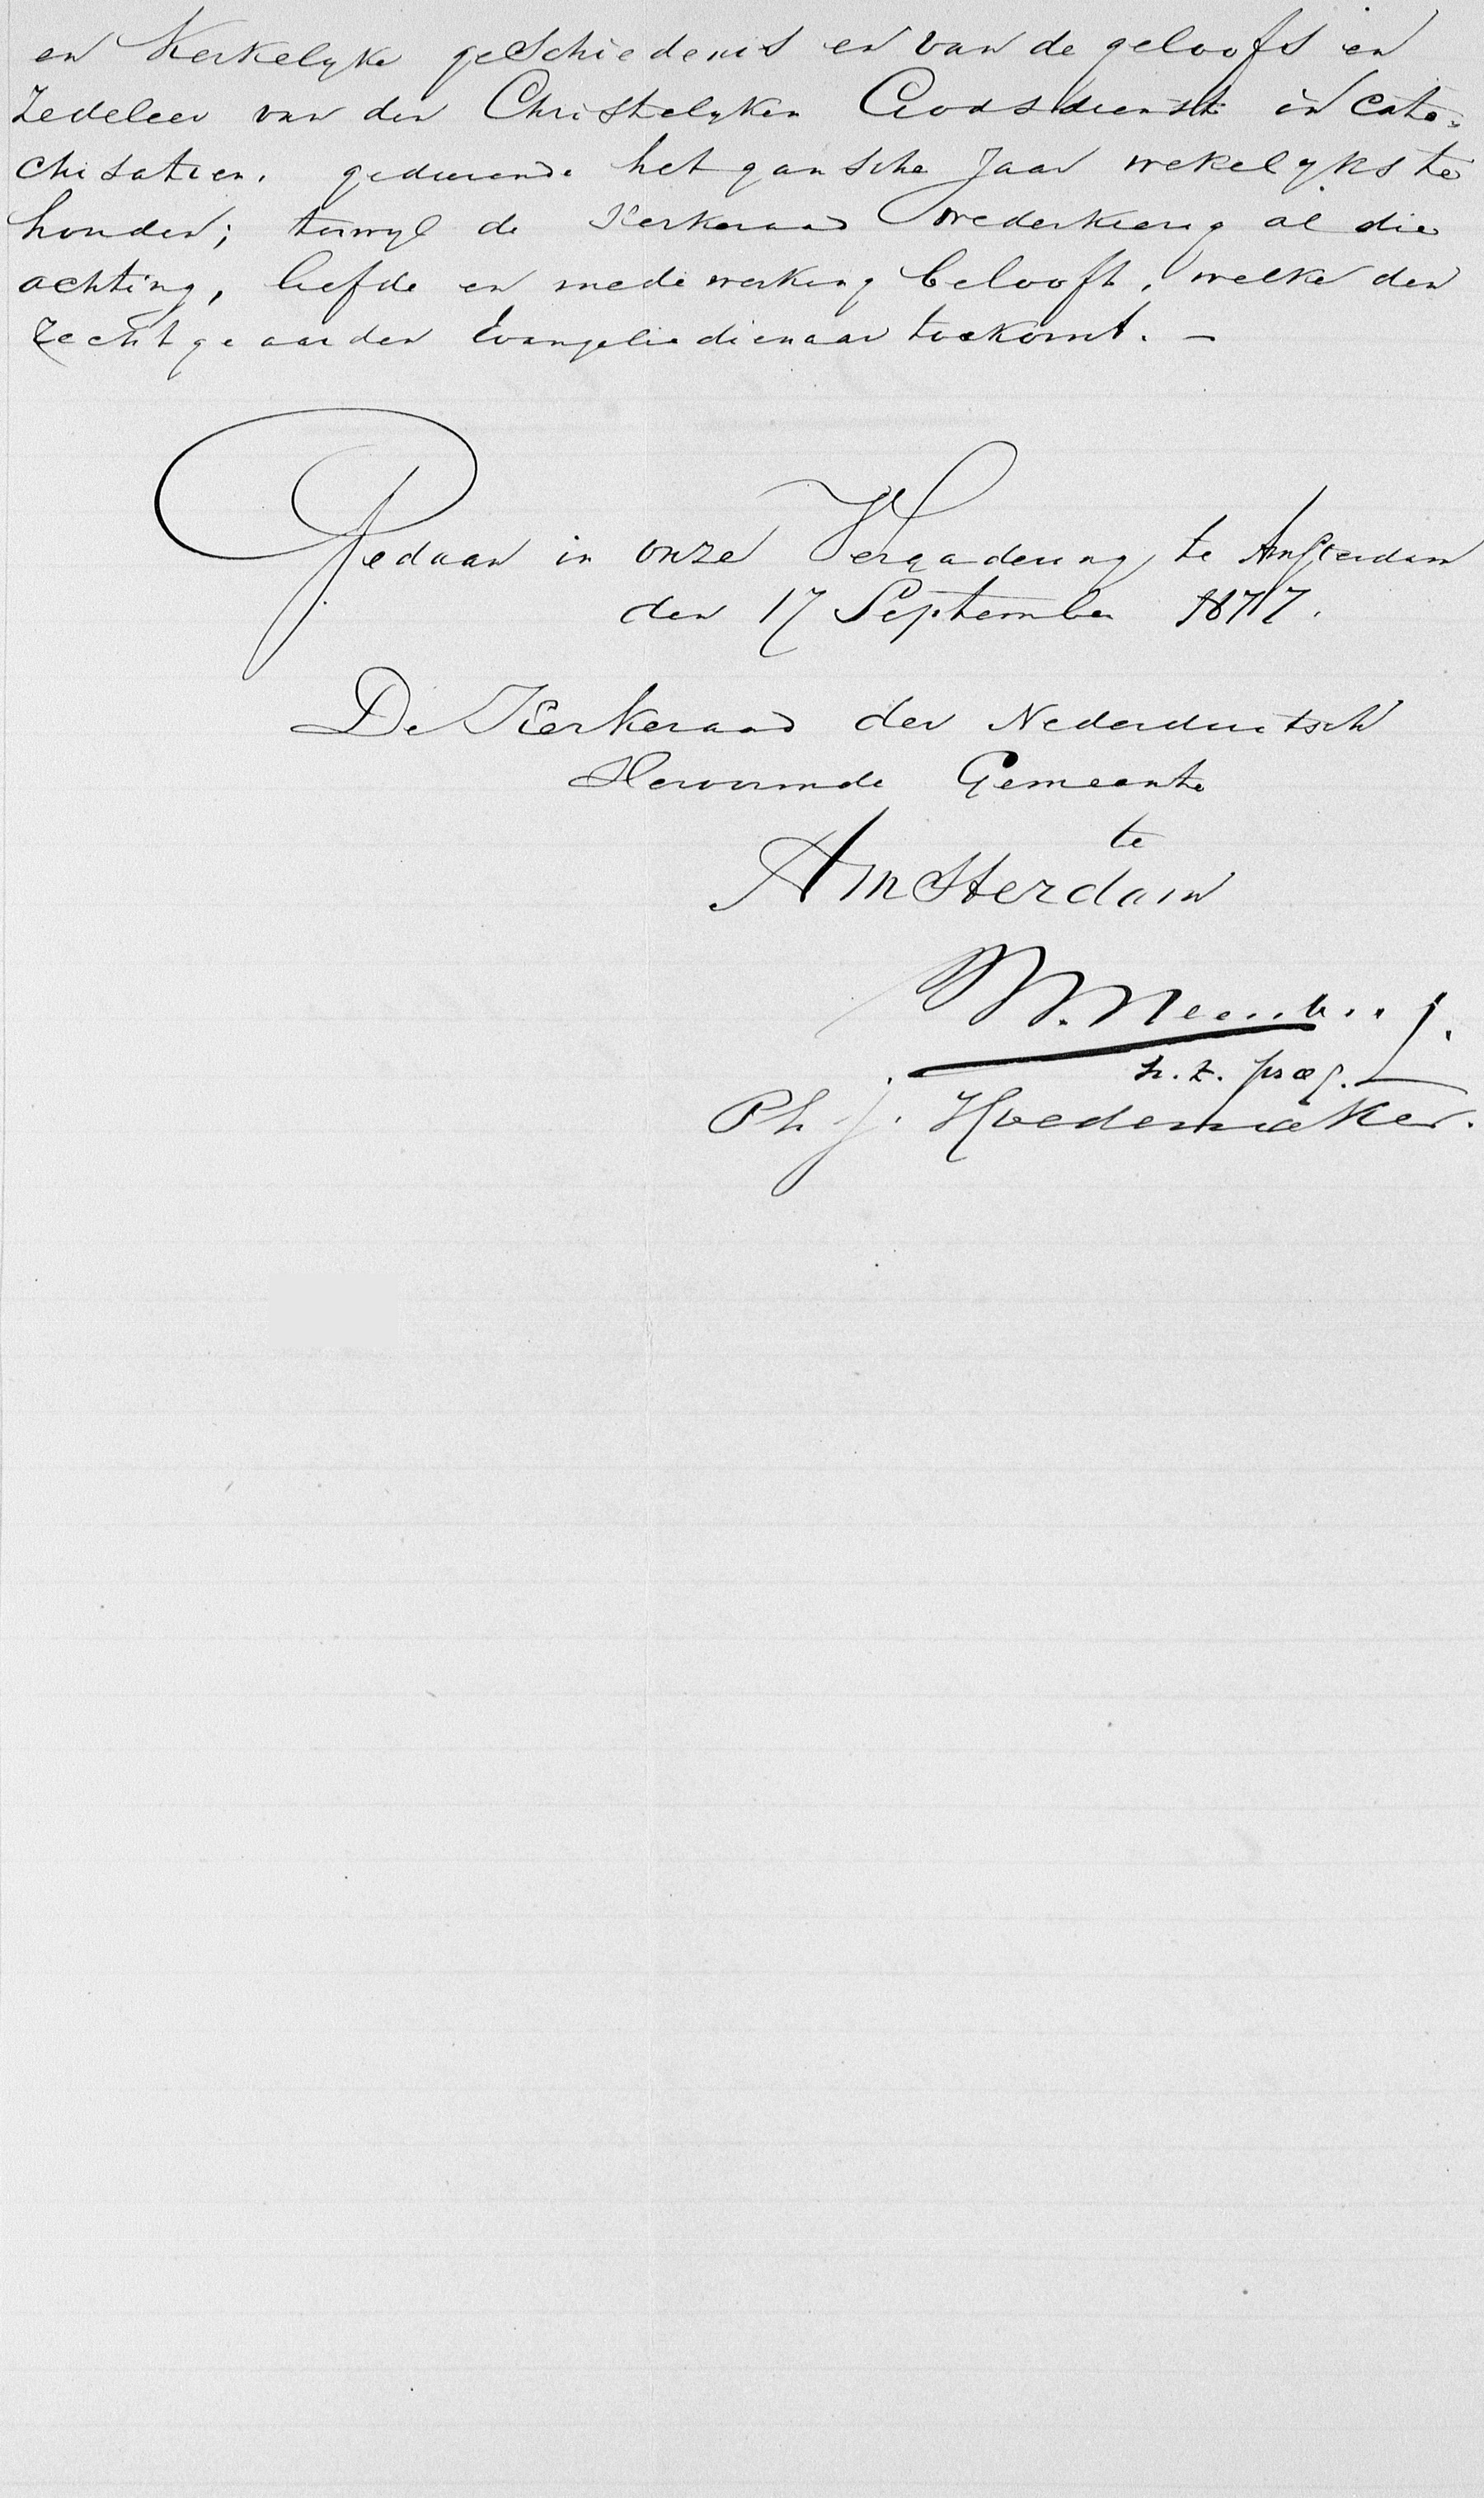 en Kerkelyke geschiedenis en van de geloofs en
Zedeleer van den Christelyken Godsdienst in Cate-
chisatien. gedurende het gansche Jaar wekelyks te
houden; terwyl de Kerkeraad wederkeerig al die
achting, liefde en medewerking belooft, welke den
rechtgeaarden Evangeliedienaar toekomt. —
Gedaan in onze Vergadering te Amsterdam
den 17 September 1877.
De Kerkeraad der Nederduitsch
Hervormde Gemeente
te
Amsterdam
h. t. praes.
Ph. J. Hoedemaker.